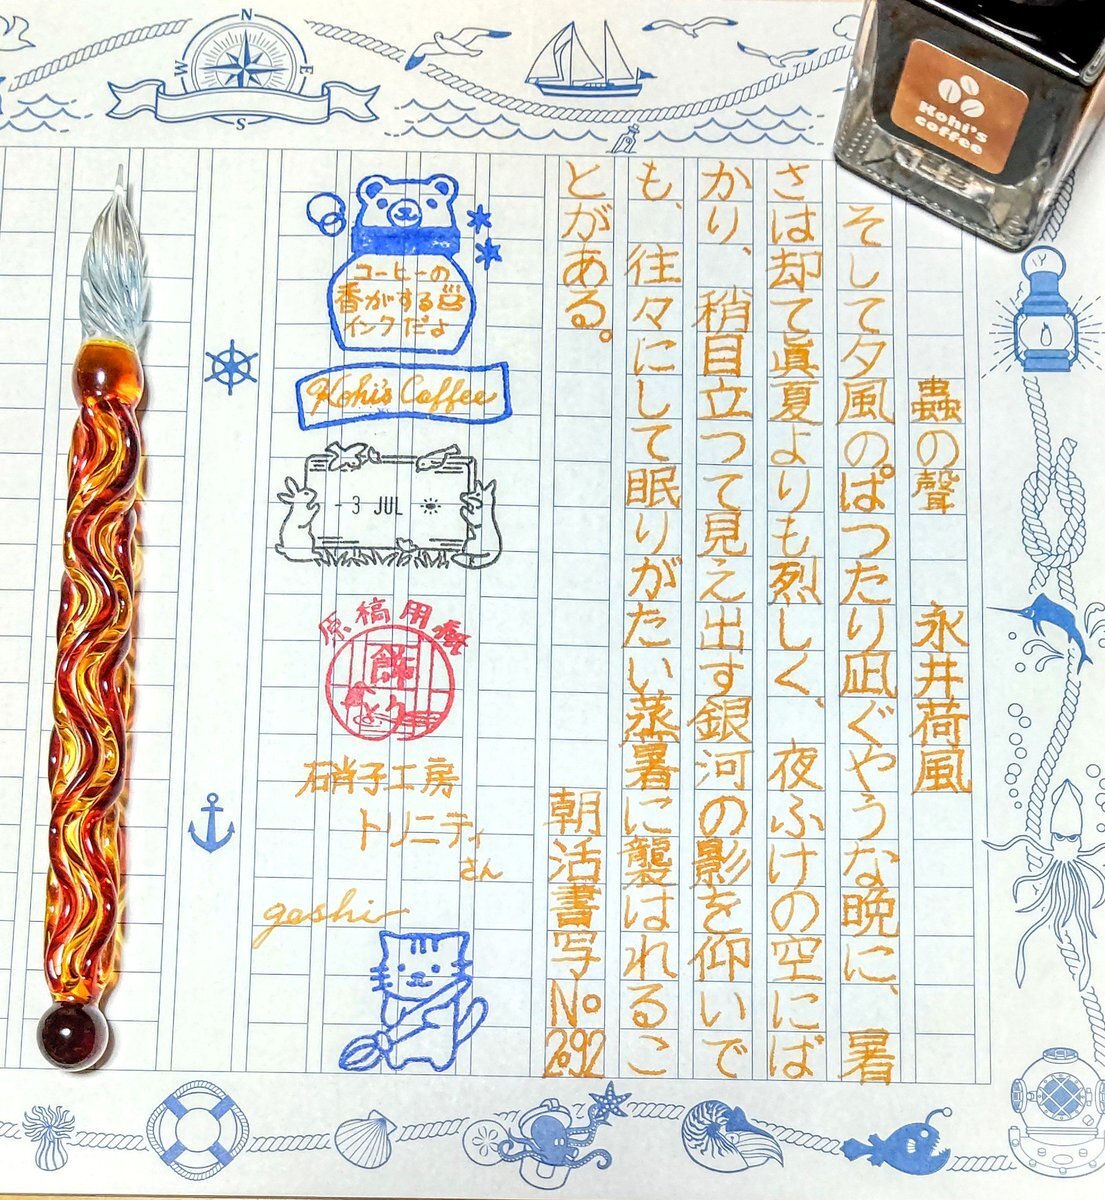 蟲の聲　永井荷風
そして夕風のぱつたり凪ぐやうな晩に、暑
さは却て眞夏よりも烈しく、夜ふけの空にば
かり、稍目立つて見え出す銀河の影を仰いで
も、往々にして眠りがたい蒸暑に襲はれるこ
とがある。
朝活書写No292
コーヒーの
香がする
インクだよ
Kohi's Coffee
-3 JUL
原稿用紙
硝子工房
トリニティ
さん
goshi
Kohi's
coffee
N
E
S
W